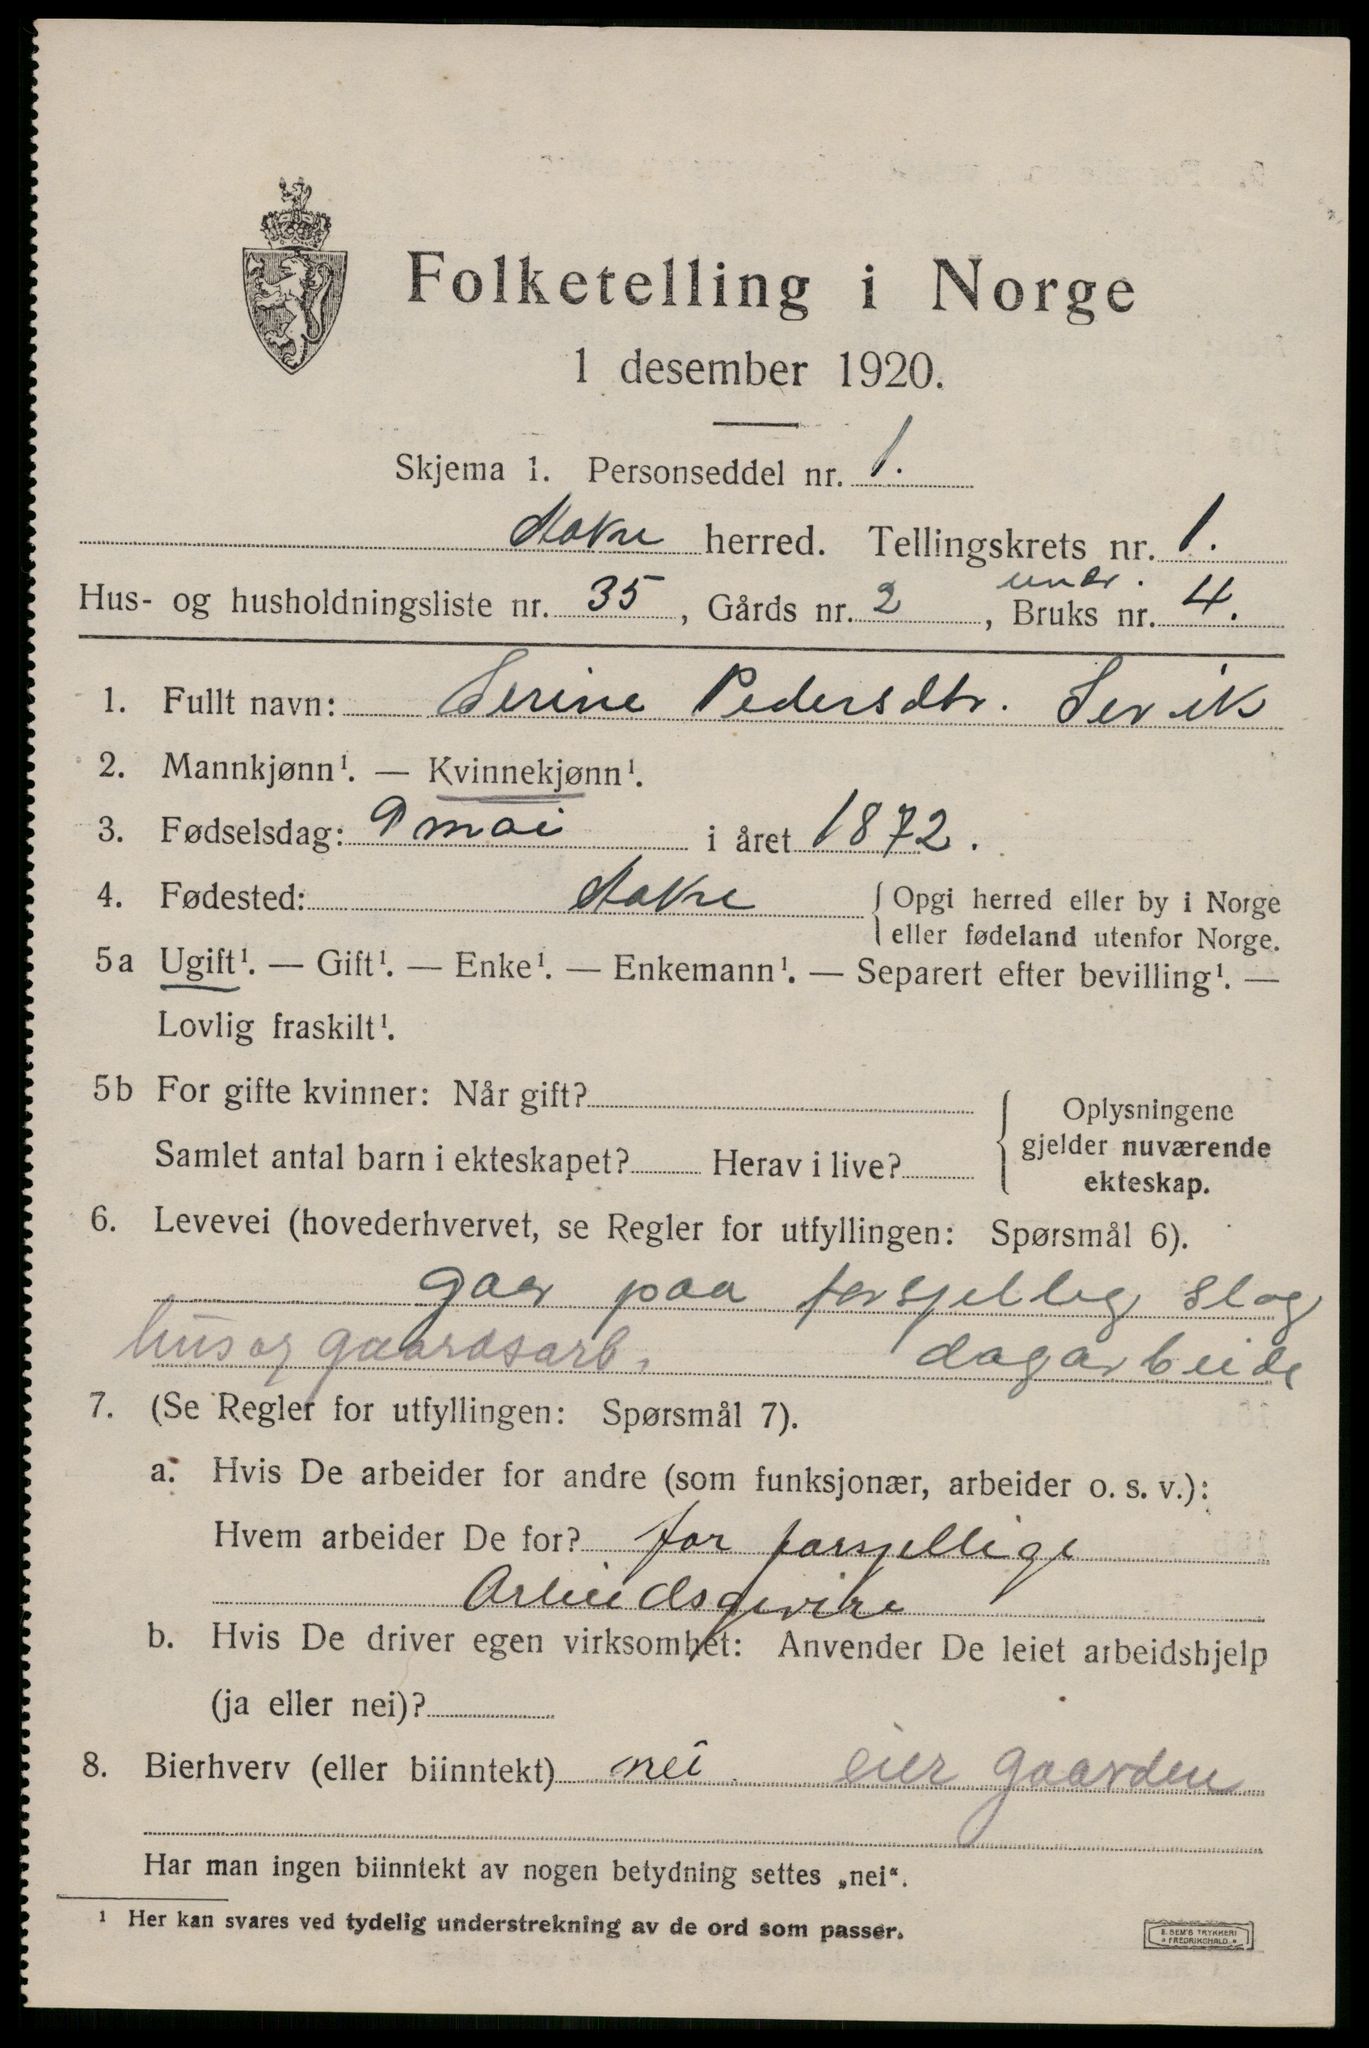 Folketelling i Norge
1 desember 1920.
Skjema 1. Personseddel nr. 1.
Aakre herred. Tellingskrets nr. 1.
Hus- og husholdningsliste nr. 35, Gårds nr. 2, undr. Bruks nr. 4.
1. Fullt navn: Serine Pedersdtr. Servik
2. Mannkjønn¹. — Kvinnekjønn¹.
3. Fødselsdag: 9 mai i året 1872.
4. Fødested: Aakre { Opgi herred eller by i Norge
eller fødeland utenfor Norge.
5a Ugift¹. — Gift¹. — Enke¹. — Enkemann¹. — Separert efter bevilling¹. —
Lovlig fraskilt¹.
5b For gifte kvinner: Når gift?
Samlet antal barn i ekteskapet? Herav i live?
{ Oplysningene
gjelder nuværende
ekteskap.
6. Levevei (hovederhvervet, se Regler for utfyllingen: Spørsmål 6).
gaar paa forsjellig slag
hus og gaardsarb. dagarbeide
7. (Se Regler for utfyllingen: Spørsmål 7).
a. Hvis De arbeider for andre (som funksjonær, arbeider o. s. v.):
Hvem arbeider De for? for forsjellige
Arbeidsgivire
b. Hvis De driver egen virksomhet: Anvender De leiet arbeidshjelp
(ja eller nei)?
8. Bierhverv (eller biinntekt) nei eier gaarden
Har man ingen biinntekt av nogen betydning settes „nei“.
¹ Her kan svares ved tydelig understrekning av de ord som passer.
E. SEM'S TRYKKERI
FREDRIKSHALD